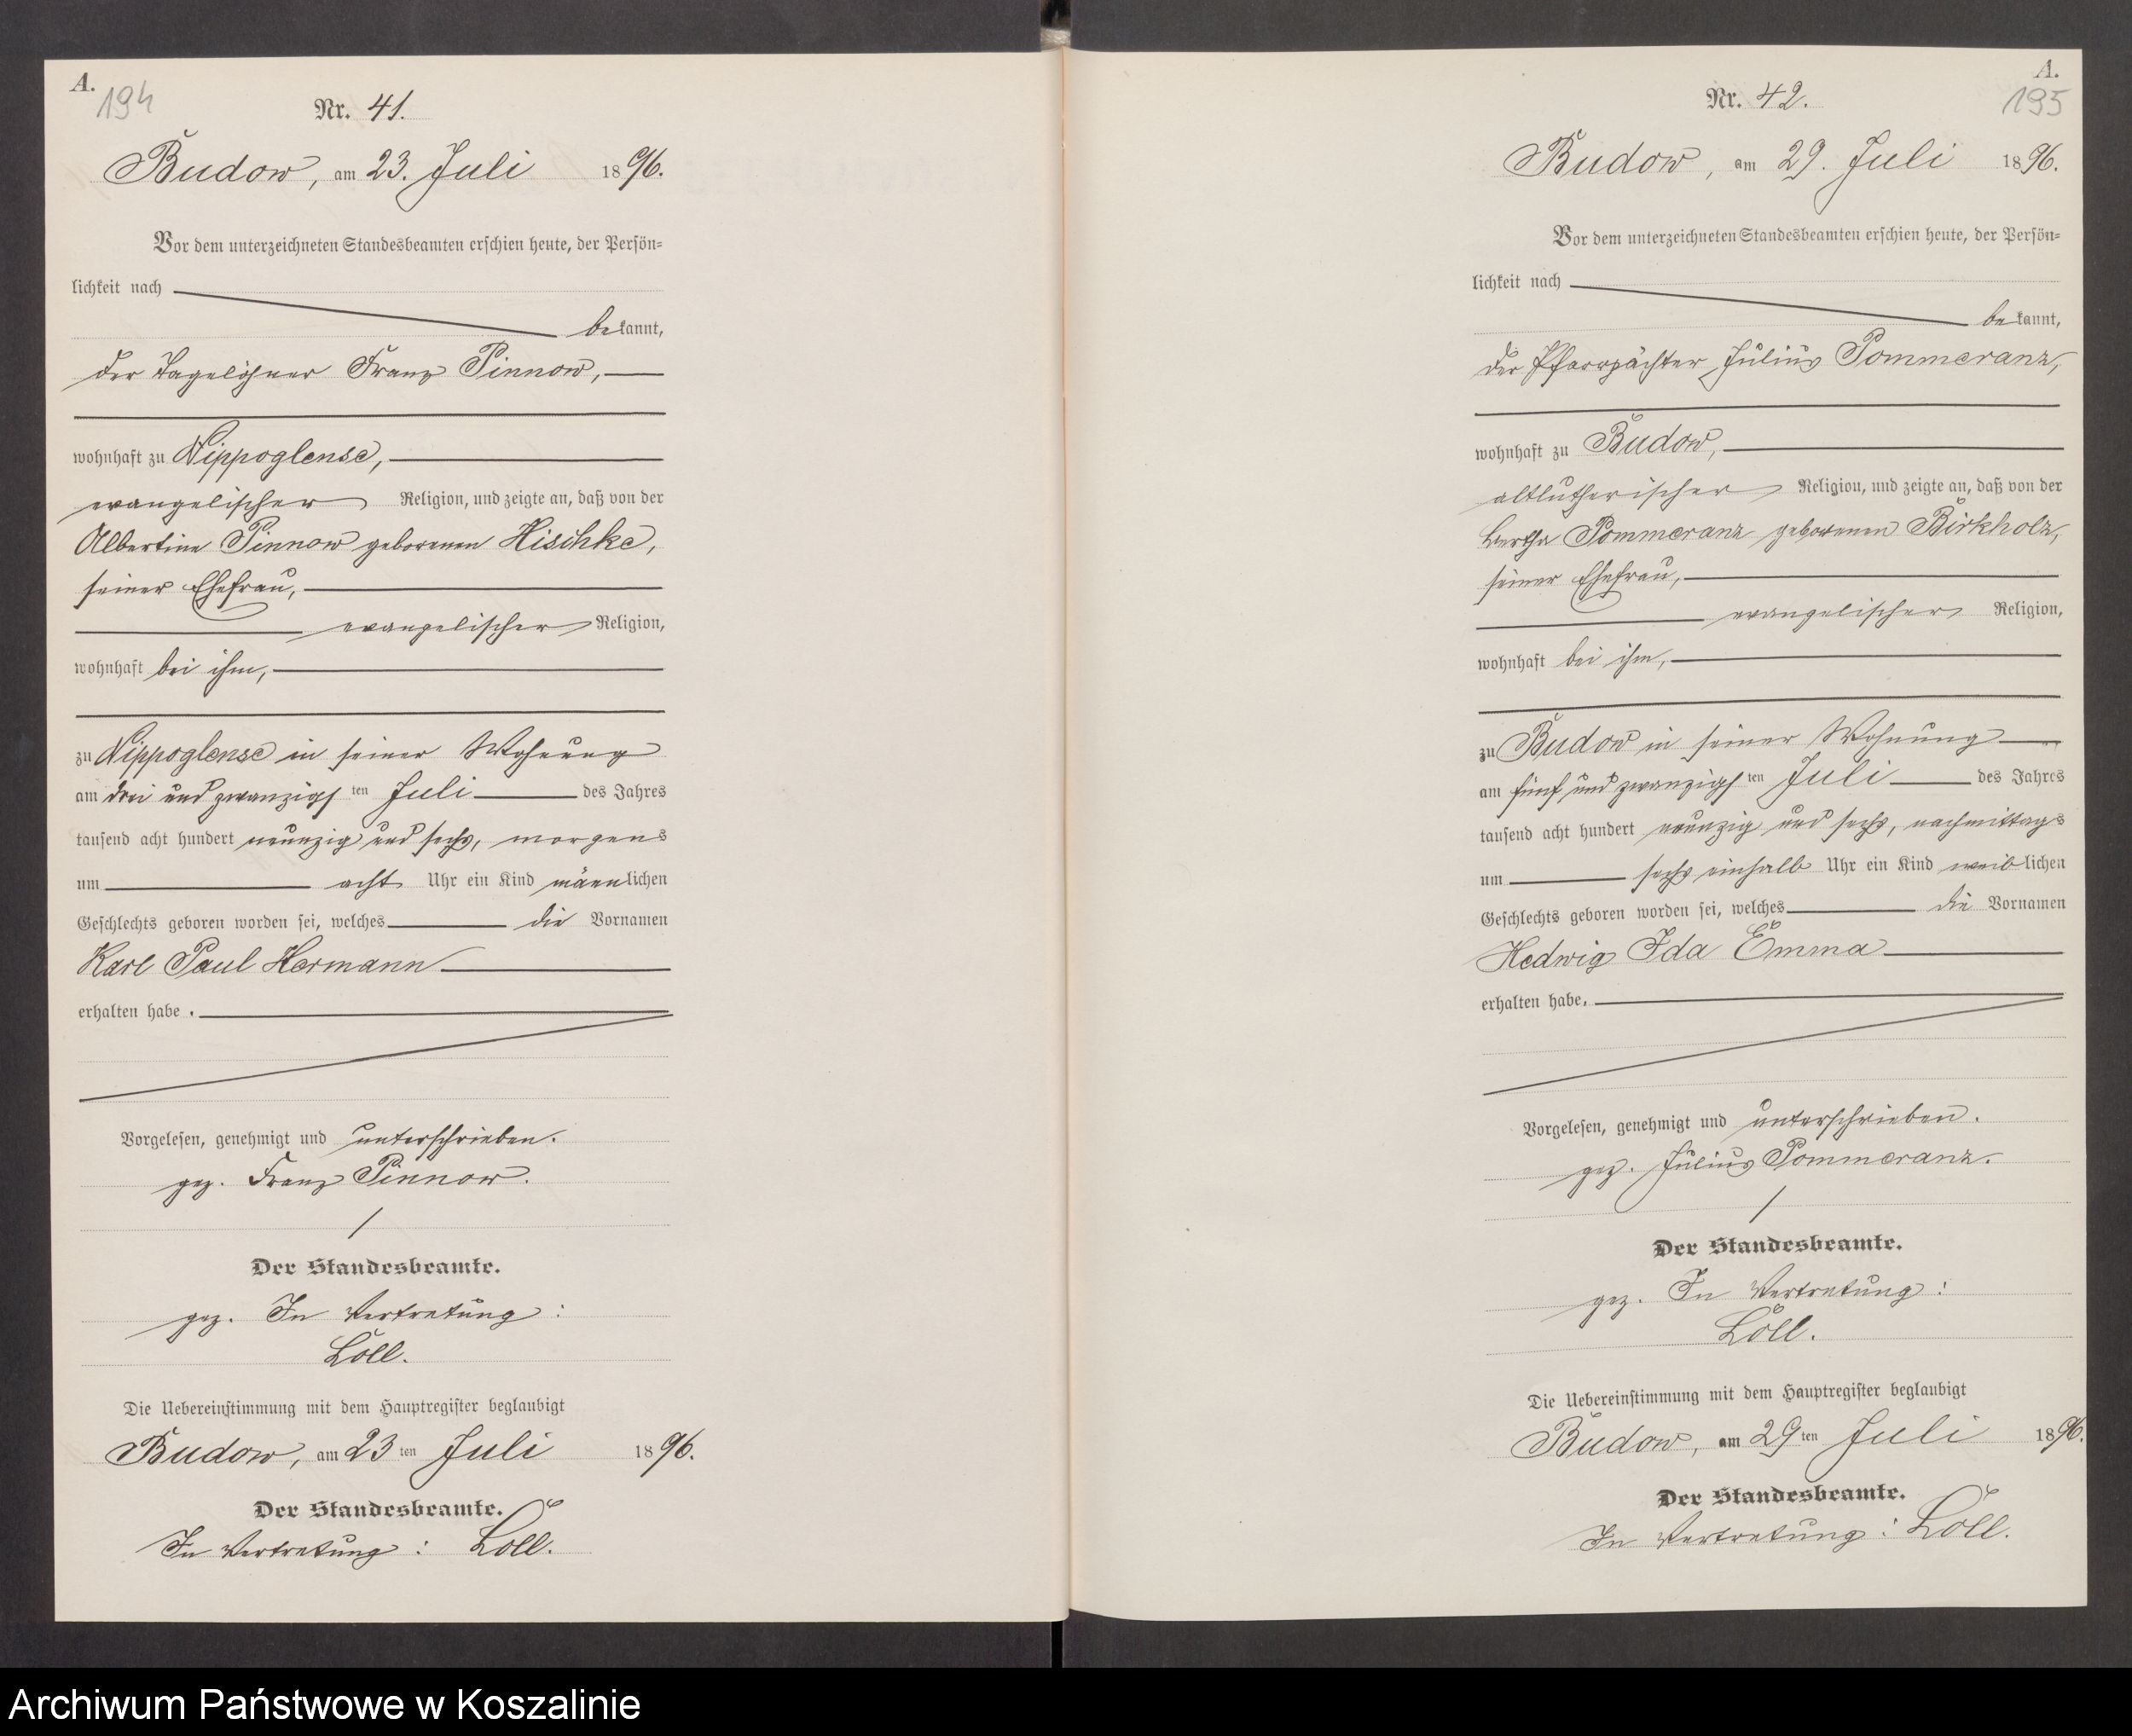 A.
194
Nr. 41.
Budow, am 23. Juli 1896.
Vor dem unterzeichneten Standesbeamten erschien heute, der Persön=
lichkeit nach
bekannt,
der Tagelöhner Franz Pinnow,
wohnhaft zu Nippoglense,
evangelischer Religion, und zeigte an, daß von der
Albertine Pinnow geborenen Hischke,
seiner Ehefrau,
evangelischer Religion,
wohnhaft bei ihm,
zu Nippoglense in seiner Wohnung
am drei und zwanzigsten Juli des Jahres
tausend acht hundert neunzig und sechs, morgens
um acht Uhr ein Kind männlichen
Geschlechts geboren worden sei, welches die Vornamen
Karl Paul Hermann
erhalten habe.
Vorgelesen, genehmigt und unterschrieben.
gez. Franz Pinnow.
Der Standesbeamte.
gez. In Vertretung:
Löll.
Die Uebereinstimmung mit dem Hauptregister beglaubigt
Budow, am 23ten Juli 1896.
Der Standesbeamte.
In Vertretung: Löll.
A.
195
Nr. 42.
Budow, am 29. Juli 1896.
Vor dem unterzeichneten Standesbeamten erschien heute, der Persön=
lichkeit nach
bekannt,
der Pfarrpächter Julius Pommeranz,
wohnhaft zu Budow,
altlutherischer Religion, und zeigte an, daß von der
Bertha Pommeranz geborenen Birkholz,
seiner Ehefrau,
evangelischer Religion,
wohnhaft bei ihm,
zu Budow in seiner Wohnung
am fünf und zwanzigsten Juli des Jahres
tausend acht hundert neunzig und sechs, nachmittags
um sechs einhalb Uhr ein Kind weiblichen
Geschlechts geboren worden sei, welches die Vornamen
Hedwig Ida Emma
erhalten habe.
Vorgelesen, genehmigt und unterschrieben.
gez. Julius Pommeranz.
Der Standesbeamte.
gez. In Vertretung:
Löll.
Die Uebereinstimmung mit dem Hauptregister beglaubigt
Budow, am 29ten Juli 1896.
Der Standesbeamte.
In Vertretung: Löll.
Archiwum Państwowe w Koszalinie